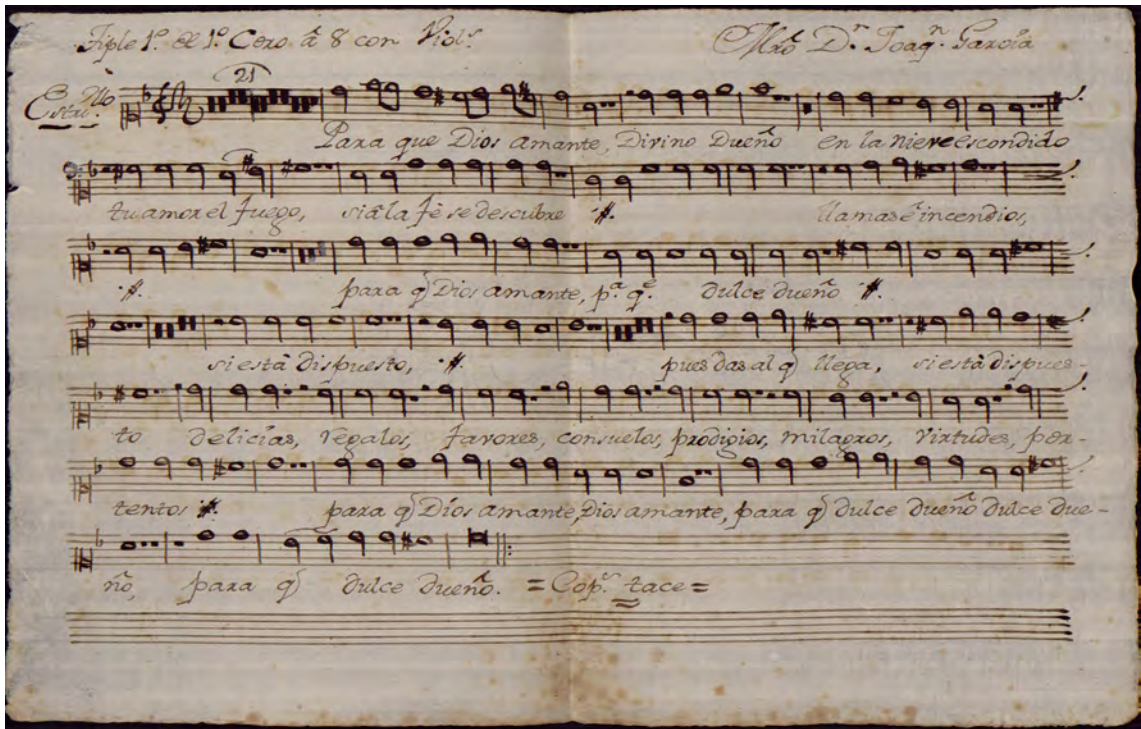 Tiple 1º. del 1º. Coro â 8 con Viols. Mrô. Dn. Joaqn. Garcia
Estrivo. Allo 21
Para que Dios amante, Divino Dueño en la nieve escondido
tu amor el fuego, si â la fè se descubre :#: llamas è incendios,
:#: para q̃ Dios amante, pa. qe. dulce dueño :#:
si està dispuesto, :#: pues das al q̃ llega, si està dispues-
to delicias, regalos, favores, consuelos, prodigios, milagros, virtudes, por-
tentos :#: para q̃ Dios amante, Dios amante, para q̃ dulce dueño dulce due-
ño, para q̃ dulce dueño. = Cops. tace =